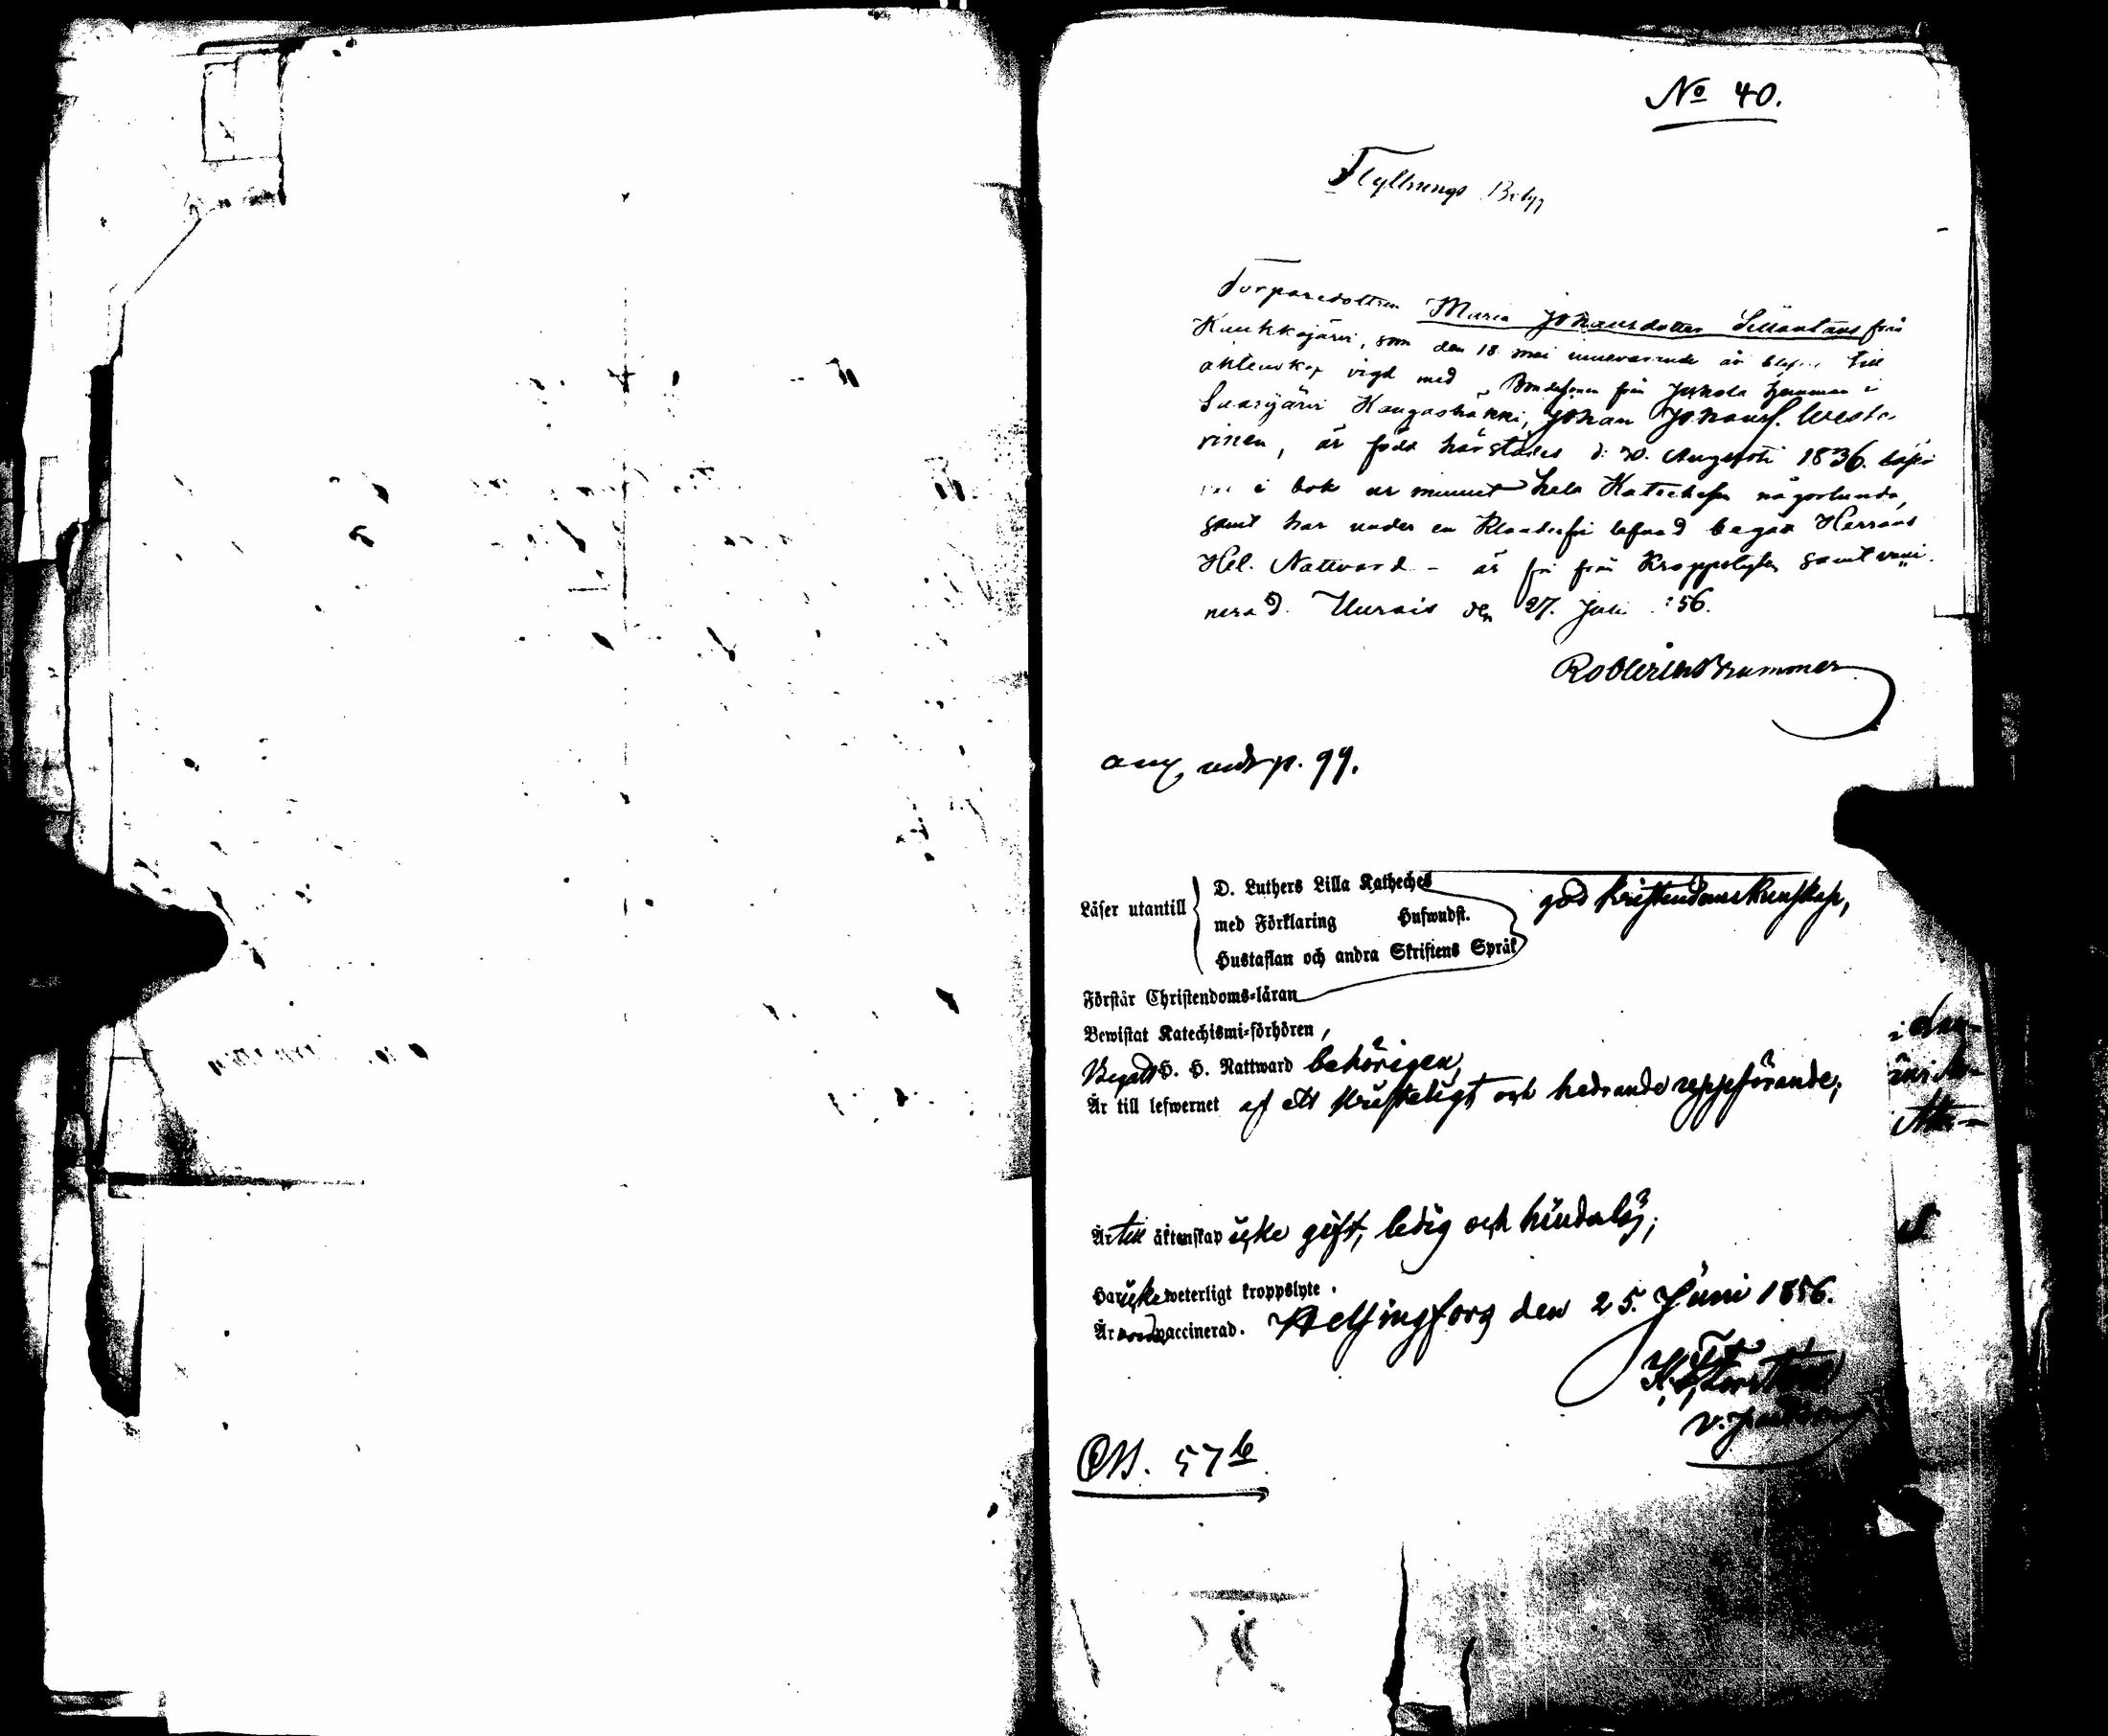 No 40.
Flyttnings Betyg
Torparedottren Maria Johansdotter Sillantaus från
Kuukkajärvi, som den 18 mai innevarande år blifvit till
äktenskap vigd med Bondesonen från Jukola hemman i
Saarijärvi Kangashäkki, Johan Johanss. Weste-
rinen, är född härstädes d: 20. Augusti 1836. läser
i bok ur minnet hela Katechesen någorlunda,
samt har under en Klanderfri lefnad begått Herrans
Hel. Nattvard - är fri från Kroppslyten samt vacci-
nerad. Uurais den 27. Juli 56.
Rob Brummer
p. 99.
Läser utantill
D. Luthers Lilla Katheches
med Förklaring Hufwudst.
Hustaflan och andra Skriftens Språk
god kristendomskunskap,
Förstår Christendoms-läran
Bewistat Katechismi-förhören,
Begått H. H. Nattward behörigen,
Är till lefwernet af ett kristeligt och hedrande uppförande;
Är till äktenskap icke gift, ledig och hinderlös;
Har icke weterligt kroppslyte.
Är vaccinerad. Helsingfors den 25. Juni 1856.
57 b